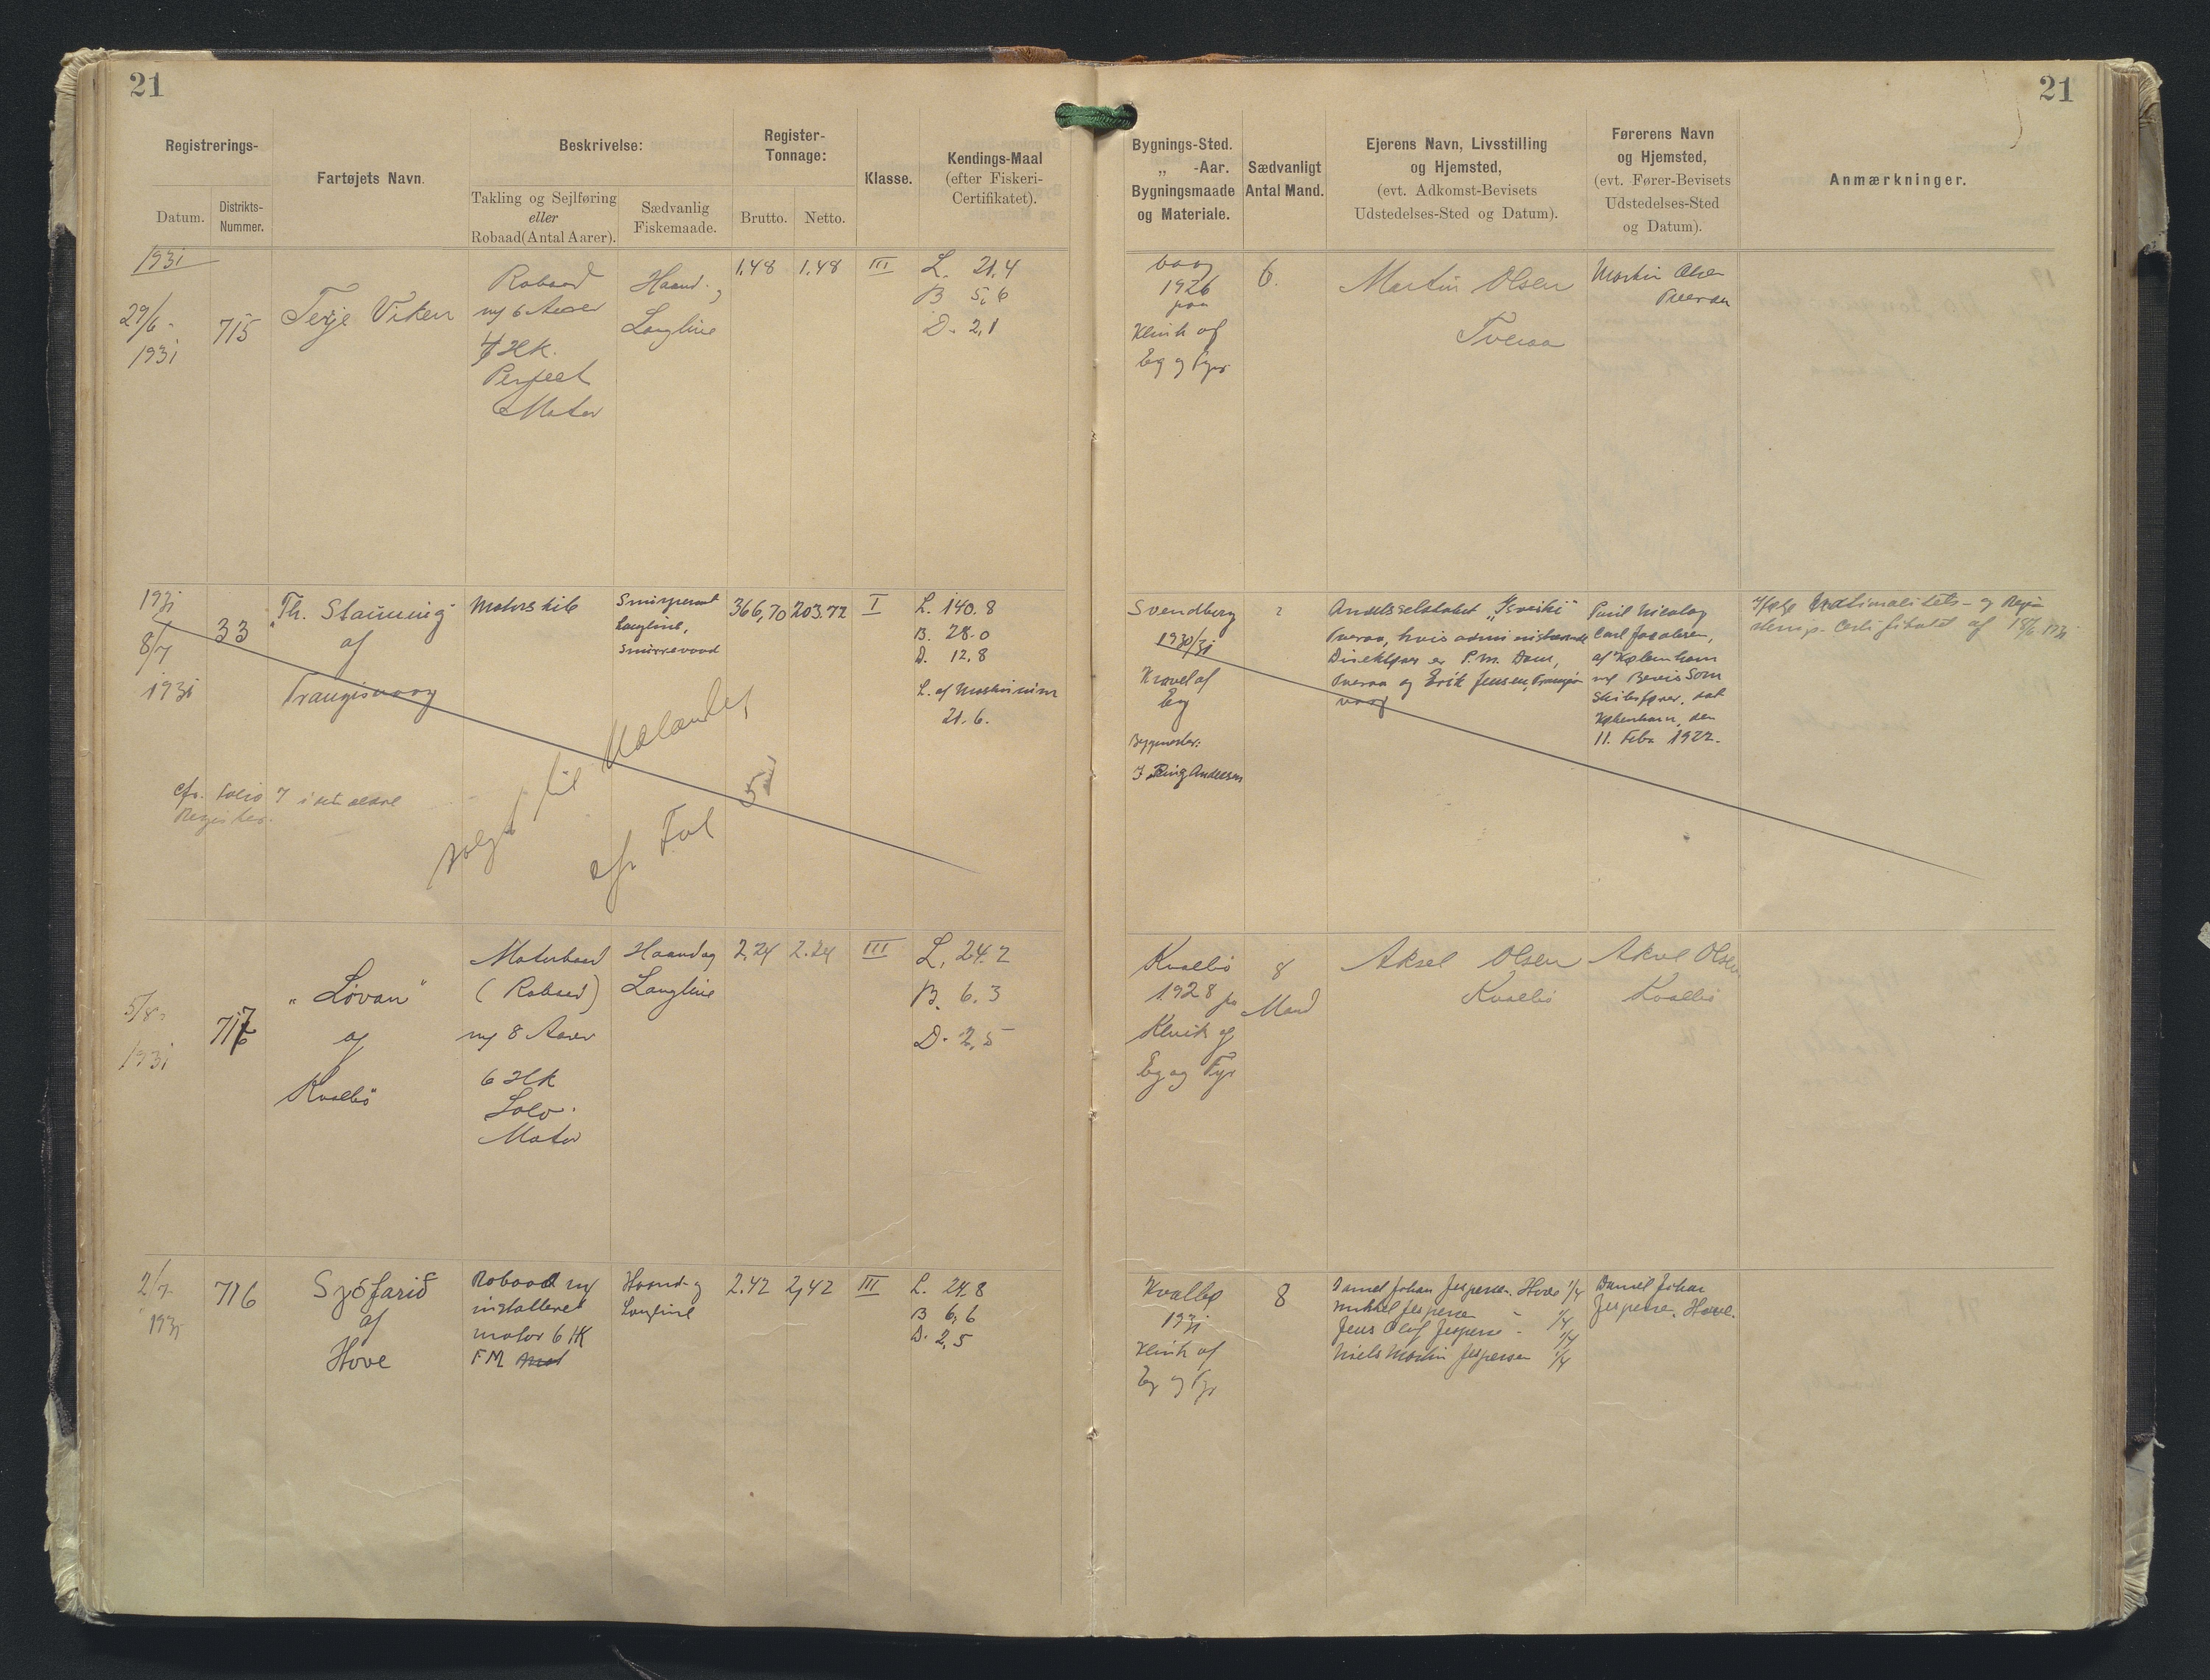 21
Registrerings-
Datum.
Distrikts-
Nummer.
Fartøjets Navn.
Beskrivelse:
Takling og Sejlføring
eller
Robaad(Antal Aarer).
Sædvanlig
Fiskemaade.
Register-
Tonnage:
Brutto. Netto.
Klasse.
Kendings-Maal
(efter Fiskeri-
Certifikatet).
1931
29/6-
1931
715
Terje Viken
Robaad
m/ 6 Aarer
4 Hk.
Perfect
Motor
Haand-
Langline
1.48 1.48 III
L. 21,4
B 5,6
D. 2,1
1931
8/7
1931
33
"Th. Stauning"
af
Trangisvaag
Motorskib
Snurpenot
Langline,
Snurrevaad
366,70 203.72 I
L. 140.8
B. 28.0
D. 12,8
L. af Maskinrum
21.6.
cfr. folio 7 i det ældre
Register.
solgt til
cfr Fol 51
5/8-
1931
717
"Lòvan"
af
Kvalbö
Motorbaad
(Robaad)
m/ 8 Aarer
6 Hk
Solo-
Motor
Haand og
Langline
2,24 2.24 III
L. 24.2
B. 6.3
D. 2,5
2/7-
1931
716
Sjófarið
af
Hove
Robaad m/
installeret
motor 6 HK
FM
Haand- og
Langline
2.42 2,42 III
L. 24,8
B 6,6
D. 2,5
21
Bygnings-Sted.
„ -Aar.
Bygningsmaade
og Materiale.
Sædvanligt
Antal Mand.
Ejerens Navn, Livsstilling
og Hjemsted,
(evt. Adkomst-Bevisets
Udstedelses-Sted og Datum).
Førerens Navn
og Hjemsted,
(evt. Fører-Bevisets
Udstedelses-Sted
og Datum).
Anmærkninger.
Vaag
1926
paa
Klink af
Eg og Fyr
6.
Martin Olsen
Tveraa
Martin Olsen
Tveraa
Svendborg
1930/31
Kravel af
Eg
Bygmester:
J Ring Andersen
?
Andelsselskabet
Tveraa, hvis administrerende
Direktører er P.M. Dam,
Tveraa og Erik Jensen, Trangis-
vaag
Poul Nicolaj
Carl Jacobsen,
af København
m/ Bevis som
Skibsfører, dat
København, den
11. Febr 1922.
Ifølge Nationalitets- og Regi-
sterings- Certifikatet af
Kvalbö
1928 paa
Klink af
Eg og Fyr
8
Mand
Aksel Olsen
Kvalbö
Aksel Olsen
Kvalbö
Kvalbø
1931
Klink af
Eg og Fyr
8
Daniel Johan Jespersen. Hove 1/4
Mikkel Jespersen - 1/4
Jens Olaf Jespersen - 1/4
Niels Martin Jespersen 1/4
Daniel Johan
Jespersen. Hove.